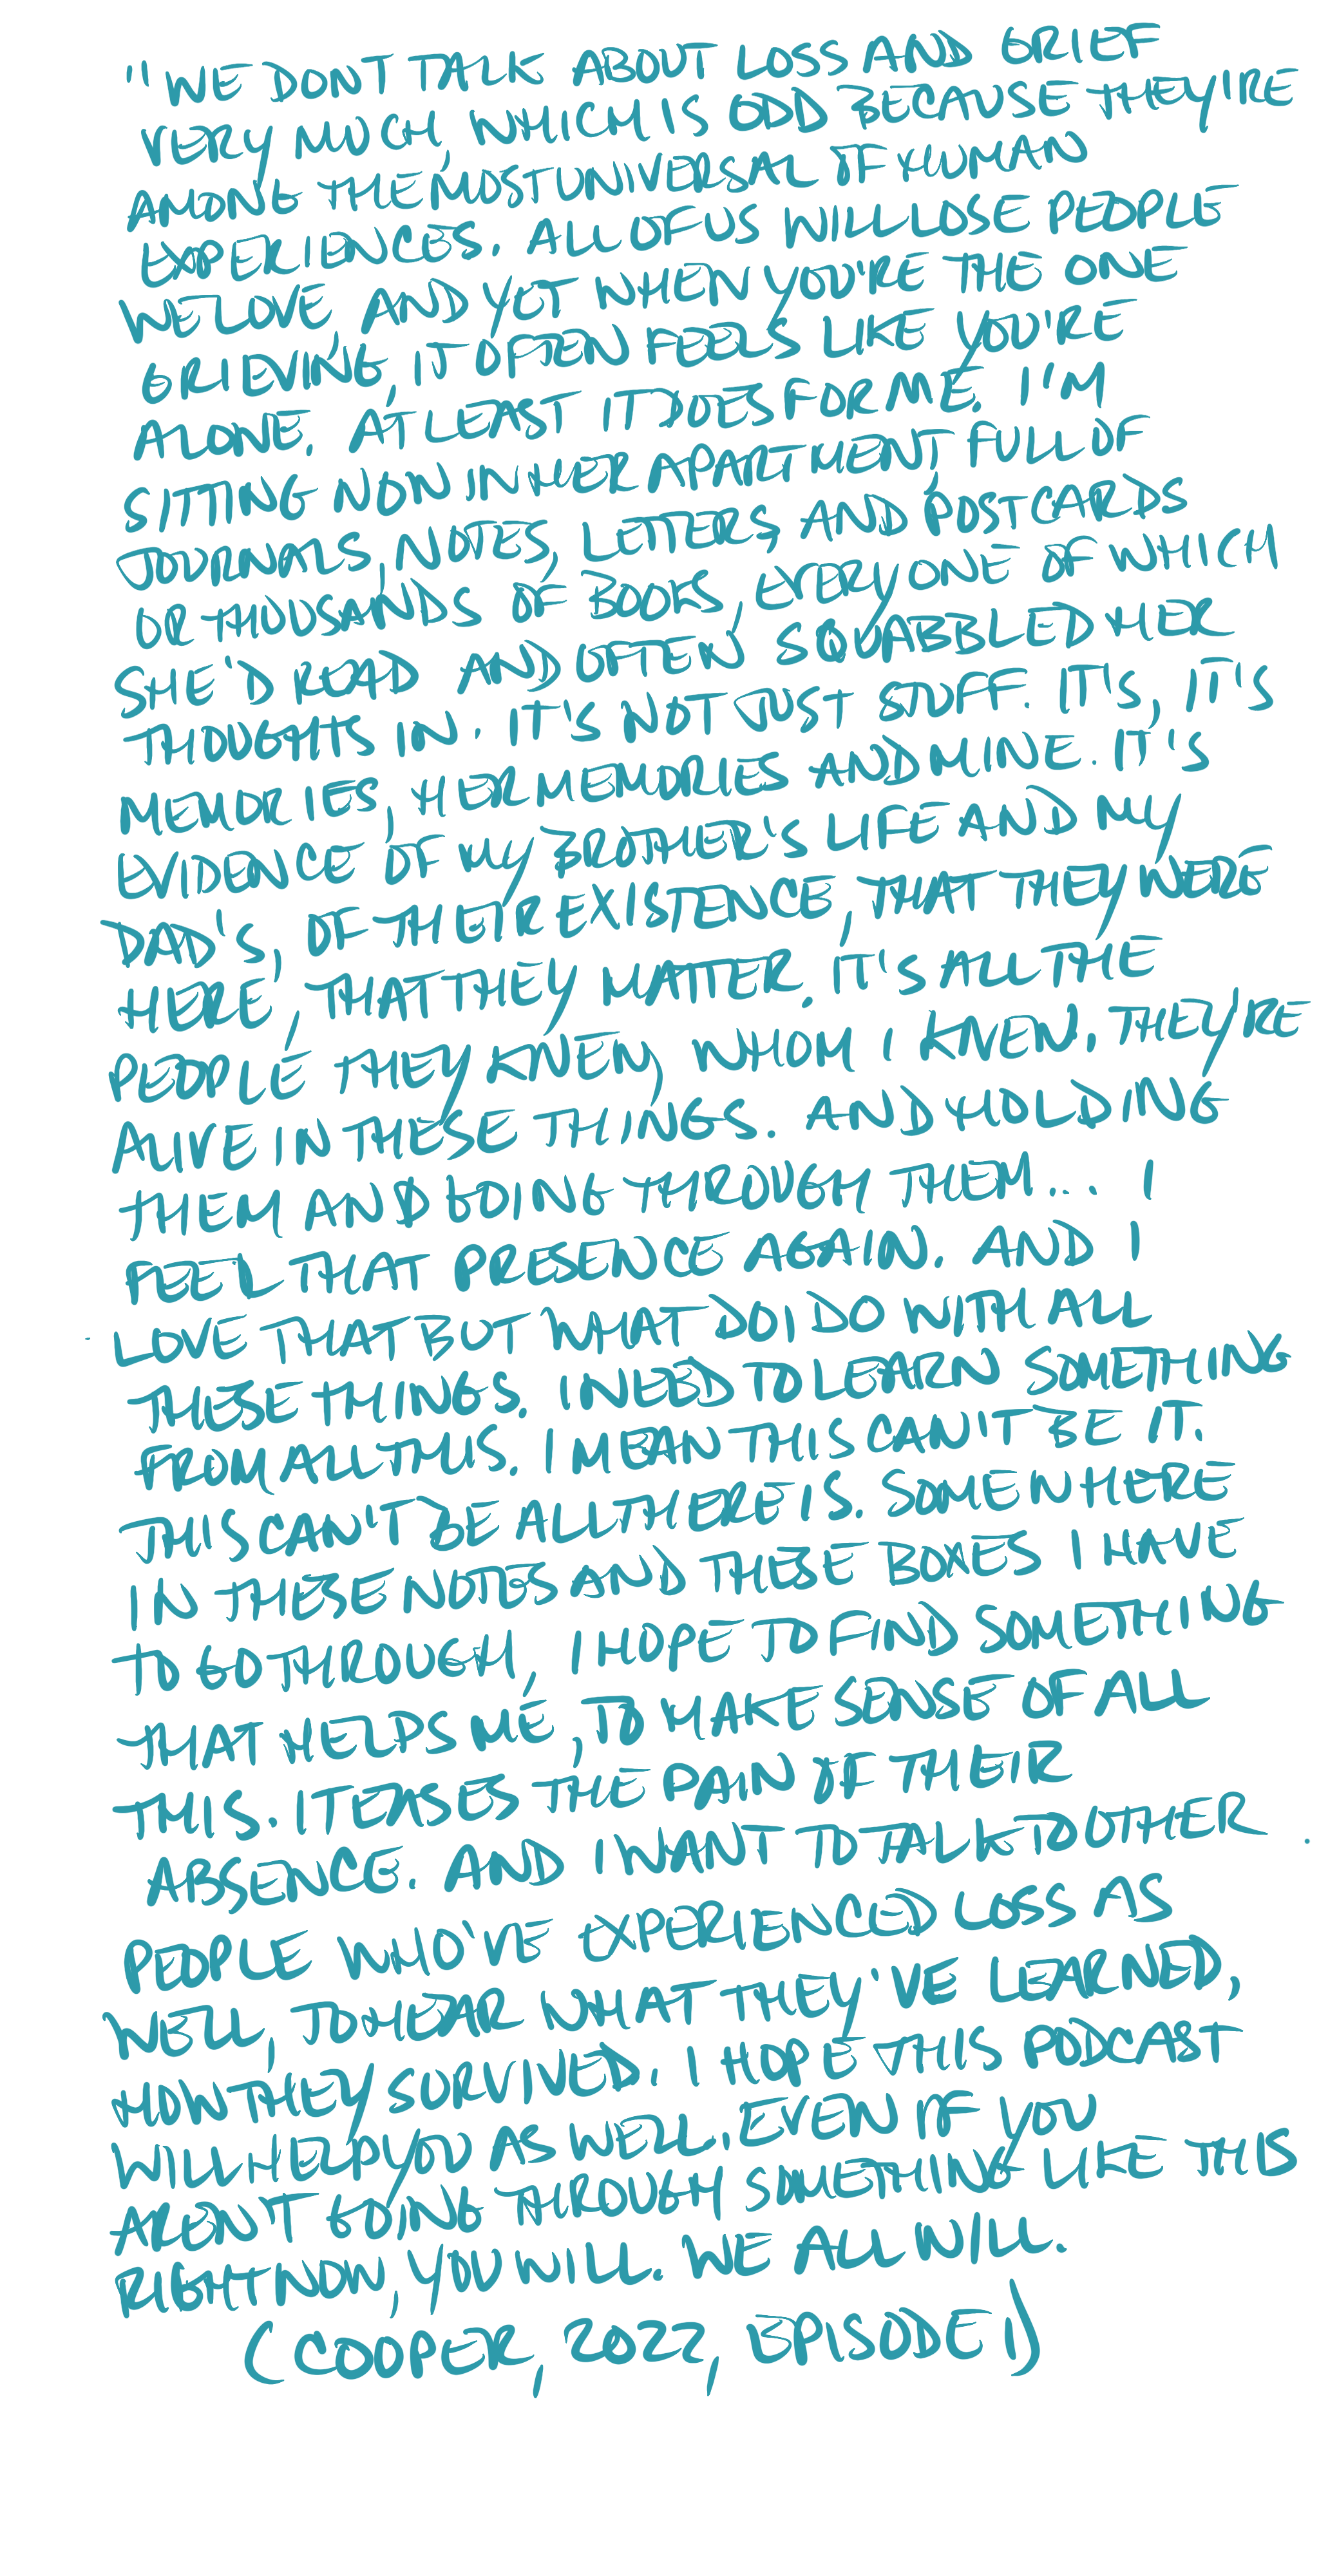 "WE DON'T TALK ABOUT LOSS AND GRIEF
VERY MUCH, WHICH IS ODD BECAUSE THEY'RE
AMONG THE MOST UNIVERSAL OF HUMAN
EXPERIENCES. ALL OF US WILL LOSE PEOPLE
WE LOVE, AND YET WHEN YOU'RE THE ONE
GRIEVING, IT OFTEN FEELS LIKE YOU'RE
ALONE. AT LEAST IT DOES FOR ME. I'M
SITTING NOW IN HER APARTMENT, FULL OF
JOURNALS, NOTES, LETTERS, AND POSTCARDS
OR THOUSANDS OF BOOKS, EVERY ONE OF WHICH
SHE'D READ AND OFTEN SQUABBLED HER
THOUGHTS IN. IT'S NOT JUST STUFF. IT'S, IT'S
MEMORIES, HER MEMORIES AND MINE. IT'S
EVIDENCE OF MY BROTHER'S LIFE AND MY
DAD'S, OF THEIR EXISTENCE, THAT THEY WERE
HERE, THAT THEY MATTER. IT'S ALL THE
PEOPLE THEY KNEW, WHOM I KNEW. THEY'RE
ALIVE IN THESE THINGS. AND HOLDING
THEM AND GOING THROUGH THEM... I
FEEL THAT PRESENCE AGAIN. AND I
LOVE THAT BUT WHAT DO I DO WITH ALL
THESE THINGS. I NEED TO LEARN SOMETHING
FROM ALL THIS. I MEAN THIS CAN'T BE IT.
THIS CAN'T BE ALL THERE IS. SOMEWHERE
IN THESE NOTES AND THESE BOXES I HAVE
TO GO THROUGH, I HOPE TO FIND SOMETHING
THAT HELPS ME, TO MAKE SENSE OF ALL
THIS. IT EASES THE PAIN OF THEIR
ABSENCE. AND I WANT TO TALK TO OTHER
PEOPLE WHO'VE EXPERIENCED LOSS AS
WELL, TO HEAR WHAT THEY'VE LEARNED,
HOW THEY SURVIVED. I HOPE THIS PODCAST
WILL HELP YOU AS WELL. EVEN IF YOU
AREN'T GOING THROUGH SOMETHING LIKE THIS
RIGHT NOW, YOU WILL. WE ALL WILL.
(COOPER, 2022, EPISODE 1)